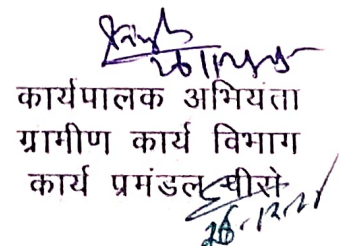 कार्यपालक अभियंता
ग्रामीण कार्य विभाग
कार्य प्रमंडल
26-12-21